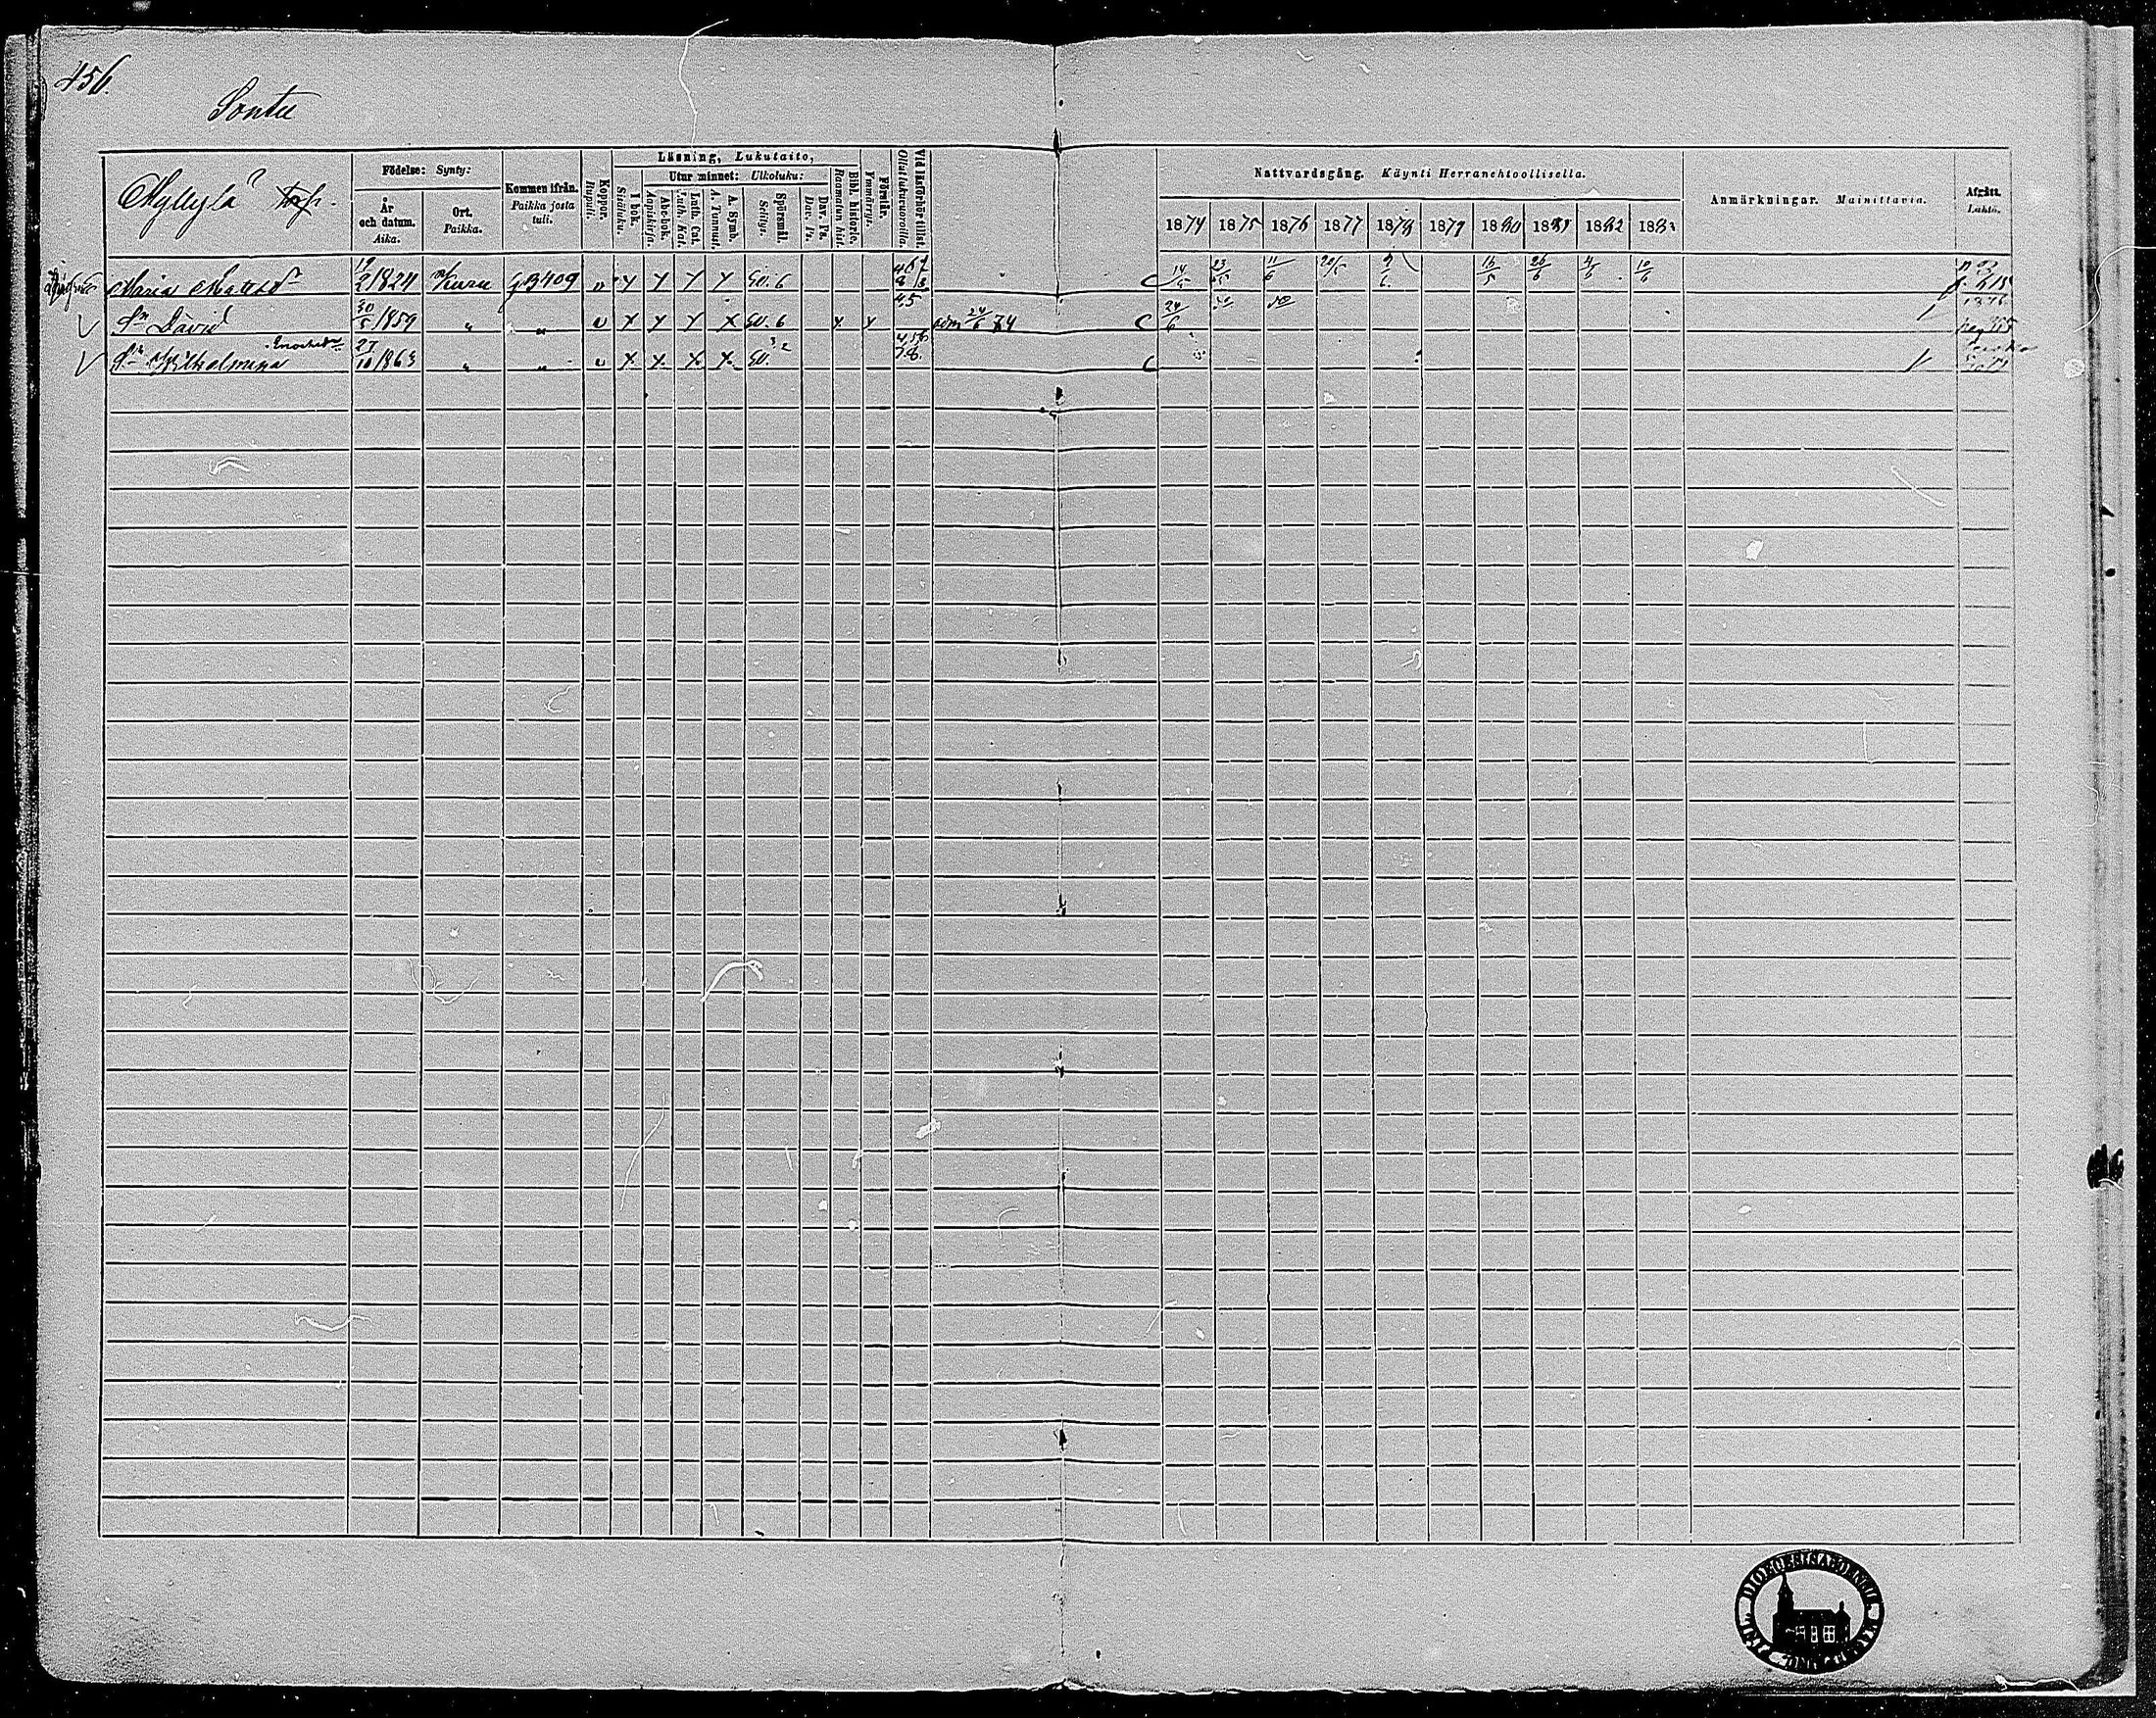 456.
Sontu
Myllylä Torp.
Födelse: Synty:
År och datum. Aika.
Ort. Paikka.
Kommen ifrån. Paikka josta tuli.
Koppor. Rupuli.
Läsning, Lukutaito,
I bok. Sisäluku.
Utur minnet: Ulkoluku:
Abc-bok. Aapiskirja.
Luth. Cat. Luth. Kat.
A. Symb. A. Tunnust.
Spörsmål. Selitys.
Dav. Ps. Dav. Ps.
Bibl. historie. Raamatun hist.
Förstår. Ymmärrys.
Vid läsförhör tillst. Ollut lukuvuoroilla.
Nattvardsgång. Käynti Herranehtoollisella.
1874 1875 1876 1877 1878 1879 1880 1881 1882 1883
Anmärkningar. Mainittavia.
Afrätt. Lähtö.
Maria Mattsdr 19/2 1824 Kuru g.B 409 " Y Y Y Y Go. 6 C 14/5 23/5 11/6 20/5 9/6 16/5 26/6 4/6 10/6
Sn David 30/5 1859 " " u X Y Y X Go. 6 Y Y adm 24/6 74 C 24/6
Dr Wilhelmina Enochsdr 27/10 1863 " " u X X X X Go. C